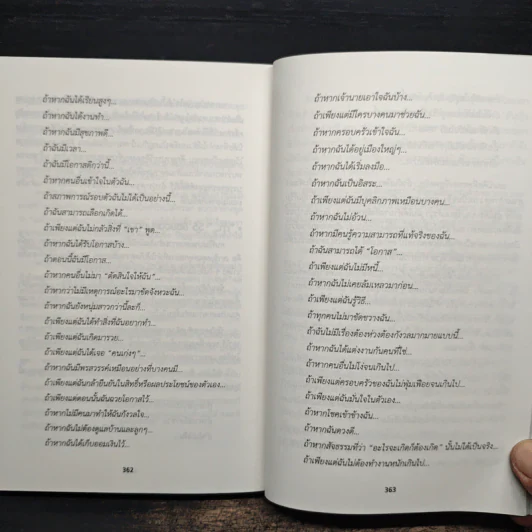 ถ้าหากฉันได้เรียนสูงๆ...
ถ้าหากฉันได้งานทำ...
ถ้าหากฉันมีสุขภาพดี...
ถ้าฉันมีเวลา...
ถ้าฉันมีโอกาสดีกว่านี้...
ถ้าหากคนอื่นเข้าใจในตัวฉัน...
ถ้าสภาพการณ์รอบตัวฉันไม่ได้เป็นอย่างนี้...
ถ้าฉันสามารถเลือกเกิดได้...
ถ้าเพียงแต่ฉันไม่กลัวสิ่งที่ "เขา" พูด...
ถ้าหากฉันได้รับโอกาสบ้าง...
ถ้าตอนนี้ฉันมีโอกาส...
ถ้าหากคนอื่นไม่มา "ตัดสินใจให้ฉัน"...
ถ้าหากว่าไม่มีเหตุการณ์อะไรมาขัดจังหวะฉัน...
ถ้าหากฉันยังหนุ่มสาวกว่านี้ละก็...
ถ้าเพียงแต่ฉันได้ทำสิ่งที่ฉันอยากทำ...
ถ้าเพียงแต่ฉันเกิดมารวย...
ถ้าเพียงแต่ฉันได้เจอ "คนเก่งๆ"...
ถ้าหากฉันมีพรสวรรค์เหมือนอย่างที่บางคนมี...
ถ้าเพียงแต่ฉันกล้ายืนยันในสิทธิ์หรือผลประโยชน์ของตัวเอง...
ถ้าเพียงแต่ตอนนั้นฉันฉวยโอกาสไว้...
ถ้าหากไม่มีคนมาทำให้ฉันกังวลใจ...
ถ้าหากฉันไม่ต้องดูแลบ้านและลูกๆ...
ถ้าหากฉันได้เก็บออมเงินไว้...
362
ถ้าหากเจ้านายเอาใจฉันบ้าง...
ถ้าเพียงแต่มีใครบางคนมาช่วยฉัน...
ถ้าหากครอบครัวเข้าใจฉัน...
ถ้าหากฉันได้อยู่เมืองใหญ่ๆ...
ถ้าหากฉันได้เริ่มลงมือ...
ถ้าหากฉันเป็นอิสระ...
ถ้าเพียงแต่ฉันมีบุคลิกภาพเหมือนบางคน...
ถ้าหากฉันไม่อ้วน...
ถ้าหากมีคนรู้ความสามารถที่แท้จริงของฉัน...
ถ้าฉันสามารถได้ "โอกาส"...
ถ้าเพียงแต่ฉันไม่มีหนี้...
ถ้าหากฉันไม่เคยล้มเหลวมาก่อน...
ถ้าเพียงแต่ฉันรู้วิธี...
ถ้าทุกคนไม่มาขัดขวางฉัน...
ถ้าฉันไม่มีเรื่องต้องห่วงต้องกังวลมากมายแบบนี้...
ถ้าหากฉันได้แต่งงานกับคนที่ใช่...
ถ้าหากคนอื่นไม่โง่จนเกินไป...
ถ้าเพียงแต่ครอบครัวของฉันไม่ฟุ่มเฟือยจนเกินไป...
ถ้าเพียงแต่ฉันมั่นใจในตัวเอง...
ถ้าหากโชคเข้าข้างฉัน...
ถ้าหากฉันดวงดี...
ถ้าหากสัจธรรมที่ว่า "อะไรจะเกิดก็ต้องเกิด" นั้นไม่ได้เป็นจริง...
ถ้าเพียงแต่ฉันไม่ต้องทำงานหนักเกินไป...
363